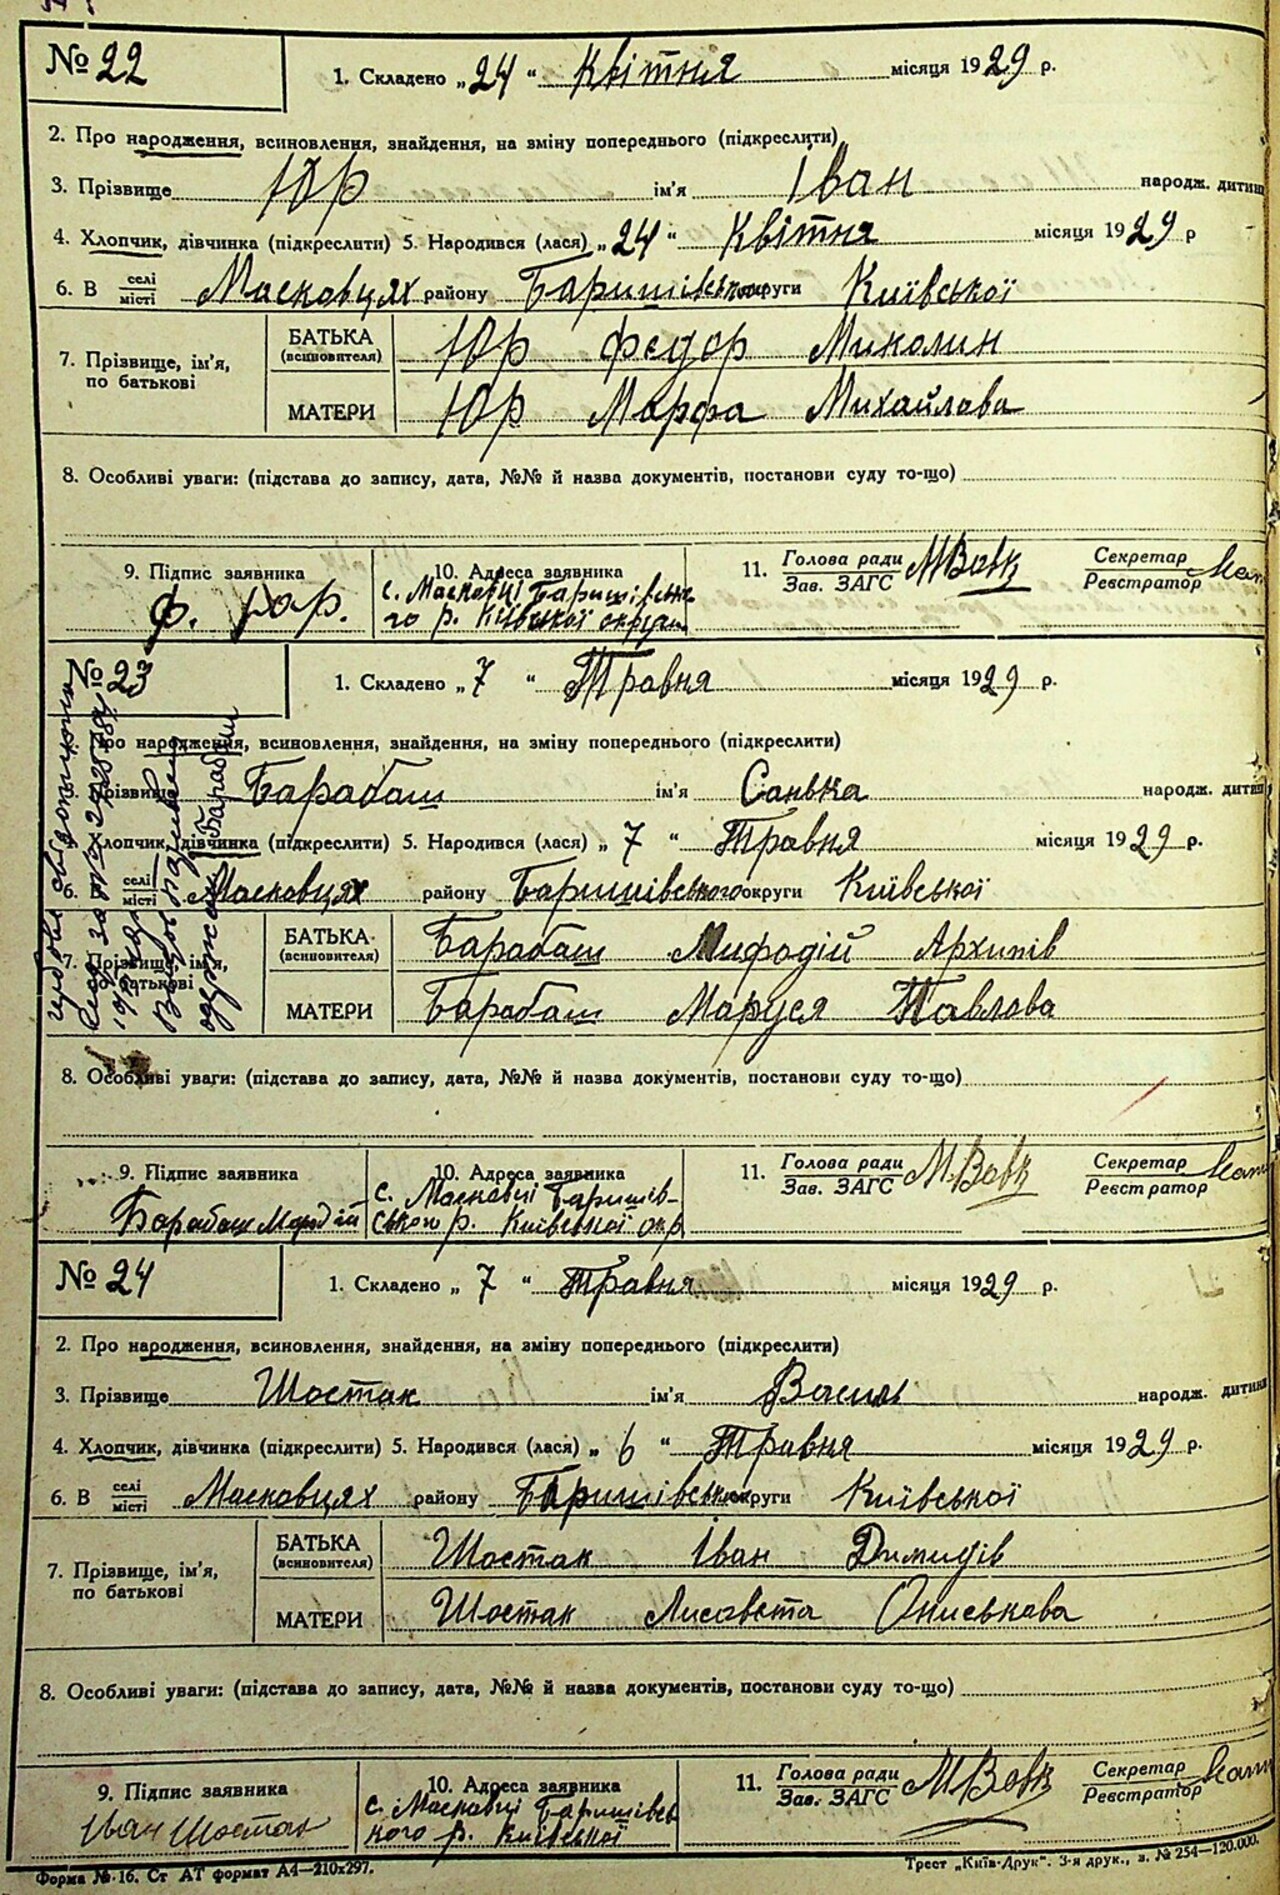 № 22
1. Складено „24“ Квітня місяця 1929 р.
2. Про народження, всиновлення, знайдення, на зміну попереднього (підкреслити)
3. Прізвище Юр ім'я Іван народж. дитини
4. Хлопчик, дівчинка (підкреслити) 5. Народився (лася) „24“ Квітня місяця 1929 р
6. В селі місті Масковцях району Баришівської округи Київської
7. Прізвище, ім'я, по батькові
БАТЬКА (всиновителя) Юр Федор Миколин
МАТЕРИ Юр Марфа Михайлова
8. Особливі уваги: (підстава до запису, дата, №№ й назва документів, постанови суду то-що)
9. Підпис заявника
Ф. Юр.
10. Адреса заявника
с. Масковці Баришівсько
го р. Київської округи
11. Голова ради Зав. ЗАГС МВовк Секретар Реєстратор
№ 23
1. Складено „7“ Травня місяця 1929 р.
Про народження, всиновлення, знайдення, на зміну попереднього (підкреслити)
3. Прізвище Барабаш ім'я Санька народж. дитини
Хлопчик, дівчинка (підкреслити) 5. Народився (лася) „7“ Травня місяця 1929 р.
6. В селі місті Масковцях району Баришівського округи Київської
7. Прізвище, ім'я, по батькові
БАТЬКА (всиновителя) Барабаш Мифодій Архипів
МАТЕРИ Барабаш Маруся Павлова
8. Особливі уваги: (підстава до запису, дата, №№ й назва документів, постанови суду то-що)
9. Підпис заявника
Барабаш
10. Адреса заявника
с. Масковці Баришів-
ського р. Київської окр
11. Голова ради Зав. ЗАГС М.Вовк Секретар Реєстратор
Барабаш
№ 24
1. Складено „7“ Травня місяця 1929 р.
2. Про народження, всиновлення, знайдення, на зміну попереднього (підкреслити)
3. Прізвище Шостак ім'я Василь народж. дитини
4. Хлопчик, дівчинка (підкреслити) 5. Народився (лася) „6“ Травня місяця 1929 р.
6. В селі місті Масковцях району Баришівської округи Київської
7. Прізвище, ім'я, по батькові
БАТЬКА (всиновителя) Шостак Іван Димидів
МАТЕРИ Шостак Лисавета Ониськова
8. Особливі уваги: (підстава до запису, дата, №№ й назва документів, постанови суду то-що)
9. Підпис заявника
Іван Шостак
10. Адреса заявника
с. Масковці Баришівсь
кого р. Київської
11. Голова ради Зав. ЗАГС М.Вовк Секретар Реєстратор
Форма № 16. Ст АТ формат А4—210х297.
Трест „Київ-Друк“. 3-я друк., з. № 254—120.000.